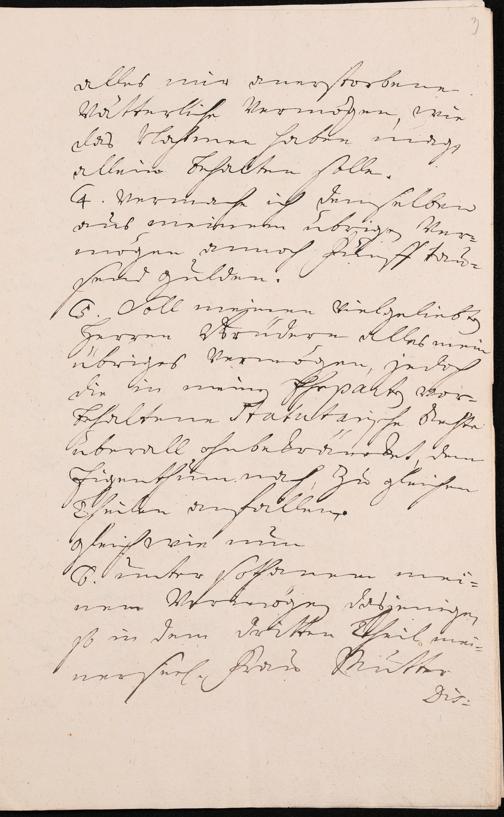 3
alles mir anerstorbene
Vätterliche Vermögen, wie
das Nahmen haben mag,
allein behalten solle.
4. Vermache ich denselben
aus meinem übrigen Ver-
mögen annoch Fünff tau-
send gulden.
5. Soll meinen vielgeliebten
Herren Brüdern alles mein
übriges Vermögen, jedoch
die in meinen Ehepacten vor-
behaltene Statutarische Rechte
überall ohnbekräncket, dem
Eigenthum nach, zu gleichen
Theilen anfallen.
gleichwie nun
6. unter sothanem mei-
nem Vermögen dasjenige,
so in dem dritten Theil mei-
ner seel. Frau Mutter
Dis-